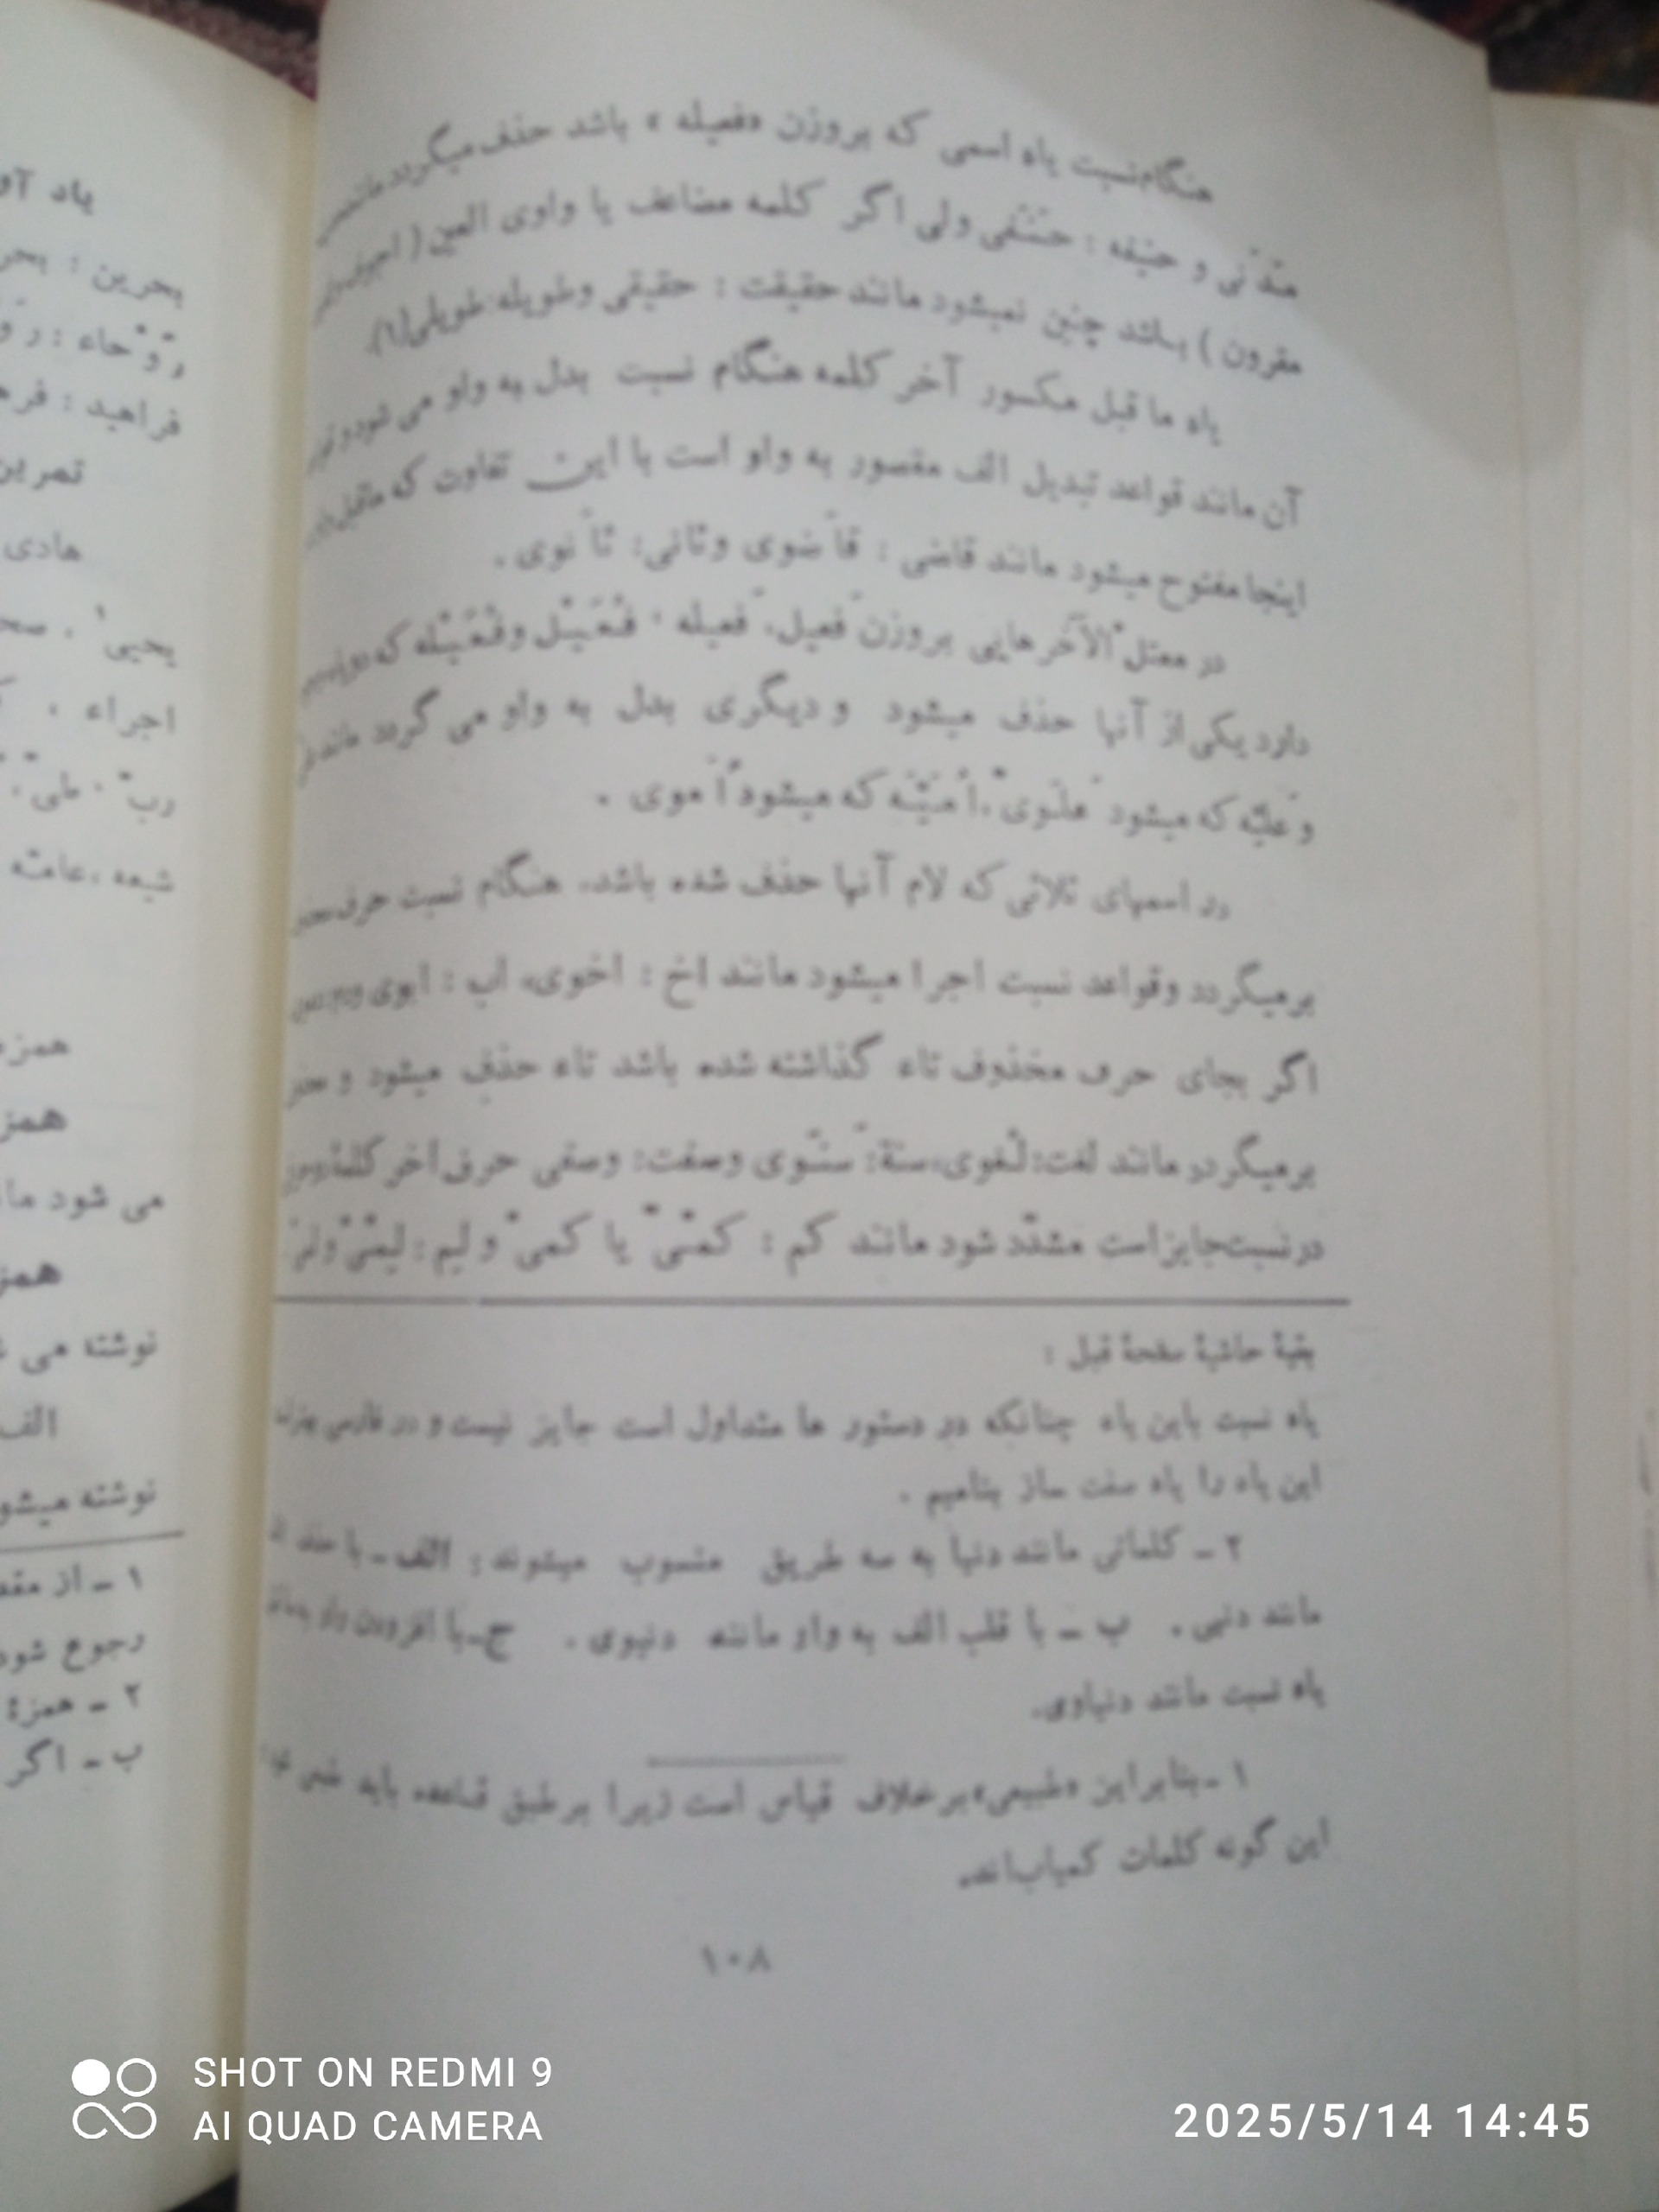 هنگام نسبت یاء اسمی که بروزن «فعیله» باشد حذف میگردد مانند
مَدَنی و حنیفه : حَنَفی ولی اگر کلمه مضاعف یا واوی العین ( اجوف
مقرون ) باشد چنین نمیشود مانند حقیقت : حقیقی وطویله: طویلی(۱).
یاء ما قبل مکسور آخر کلمه هنگام نسبت بدل به واو می شود و
آن مانند قواعد تبدیل الف مقصور به واو است با این تفاوت که ماقبل
اینجا مفتوح میشود مانند قاضی : قاضَوی وثانی: ثانَوی .
در معتلّ الآخرهایی بروزن فَعیل، فَعیله ، فُعَیْل وفُعَیْله که دو
دارد یکی از آنها حذف میشود و دیگری بدل به واو می گردد مانند
و عَلیّه که میشود عَلَویّ، اُمَیَّه که میشود اُمَوی .
در اسمهای ثلاثی که لام آنها حذف شده باشد، هنگام نسبت حرف
برمیگردد وقواعد نسبت اجرا میشود مانند اخ : اخوی، اب : ابوی
اگر بجای حرف محذوف تاء گذاشته شده باشد تاء حذف میشود و
برمیگردد مانند لغت: لُغوی، سنة: سَنَوی وصفت: وصفی حرف اخر کلمهٔ
در نسبت جایز است مشدّد شود مانند کم : کمّیّ یا کمیّ و لیم : لیمّیّ
بقیهٔ حاشیهٔ صفحهٔ قبل :
یاء نسبت باین یاء چنانکه در دستور ها متداول است جایز نیست و در فارسی
این یاء را یاء صفت ساز بنامیم .
۲ - کلماتی مانند دنیا به سه طریق منسوب میشوند : الف - با حذف
مانند دنیی . ب - با قلب الف به واو مانند دنیوی . ج - با افزودن واو
یاء نسبت مانند دنیاوی.
۱ - بنابراین «طبیعی» بر خلاف قیاس است زیرا بر طبق قاعده باید
این گونه کلمات کمیاب‌اند.
۱۰۸
یاد
بحرین :
رَوْحاء :
فراهید :
هادی
یحیی ،
اجراء ،
ربّ ،
شیعه ، عامّه
می شود
نوشته می
الف
نوشته
۱ - از
رجوع شود
۲ - همزهٔ
ب - اگر
SHOT ON REDMI 9
AI QUAD CAMERA
2025/5/14 14:45